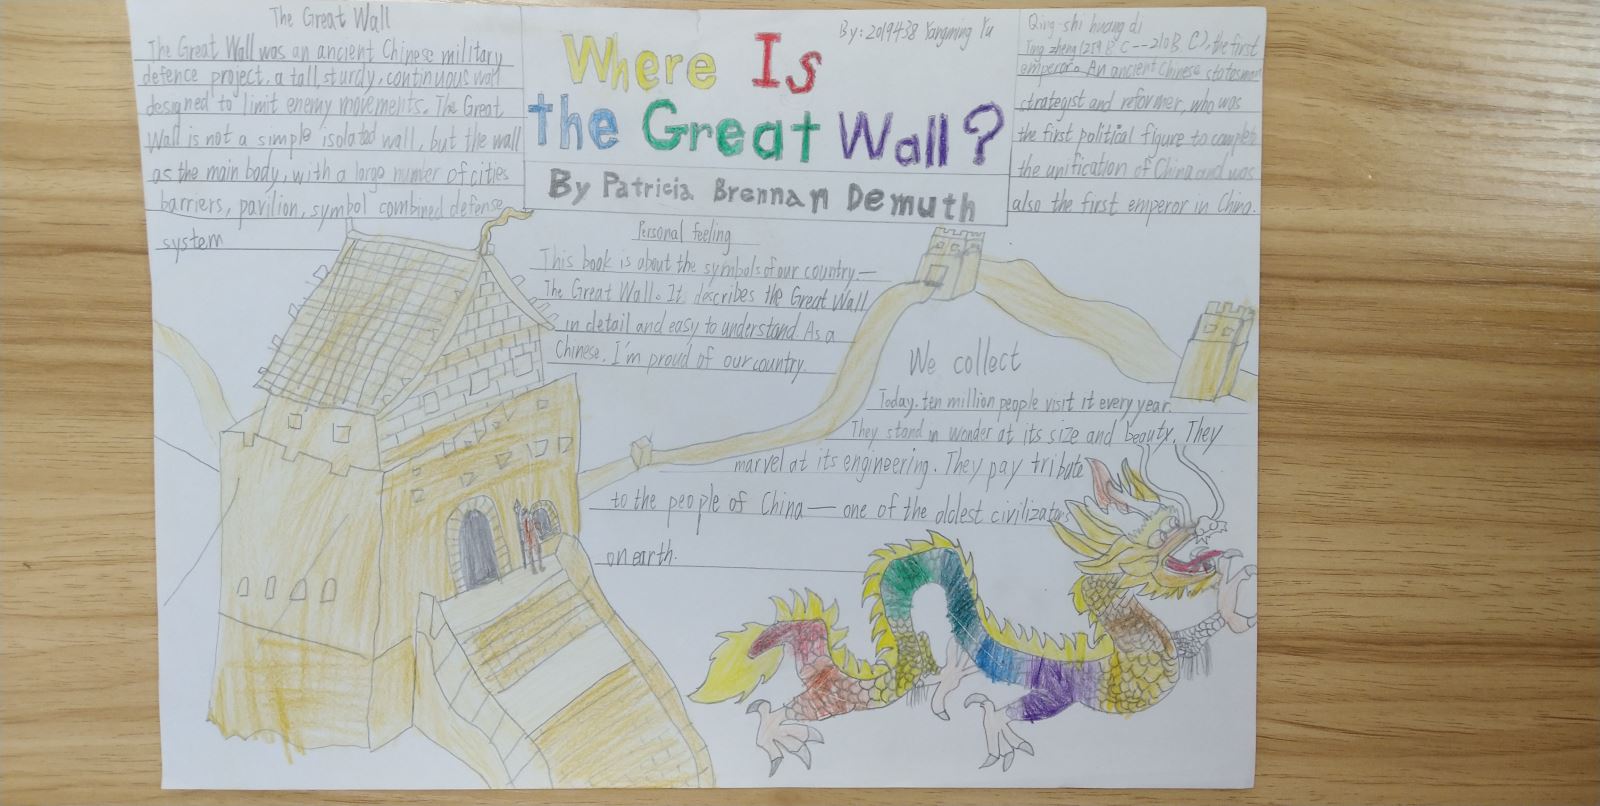 The Great Wall
The Great Wall was an ancient Chinese military
defence project. a tall, sturdy, continuous wall
designed to limit enemy movements. The Great
Wall is not a simple isolated wall, but the wall
as the main body, with a large number of cities
barriers, pavilion, symbol combined defense
system
Where Is
the Great Wall?
By Patricia Brennan Demuth
By: 2019438 Yangming Yu
Qing-shi huang di
Ying zheng (259 B C -- 210 B C), the first
emperor. An ancient Chinese statesman
strategist and reformer, who was
the first political figure to complete
the unification of China and was
also the first emperor in China.
Personal feeling
This book is about the symbols of our country —
The Great Wall. It describes the Great Wall
in detail and easy to understand. As a
Chinese. I'm proud of our country.
We collect
Today. ten million people visit it every year.
They stand in wonder at its size and beauty. They
marvel at its engineering. They pay tribute
to the people of China — one of the oldest civilizations
on earth.